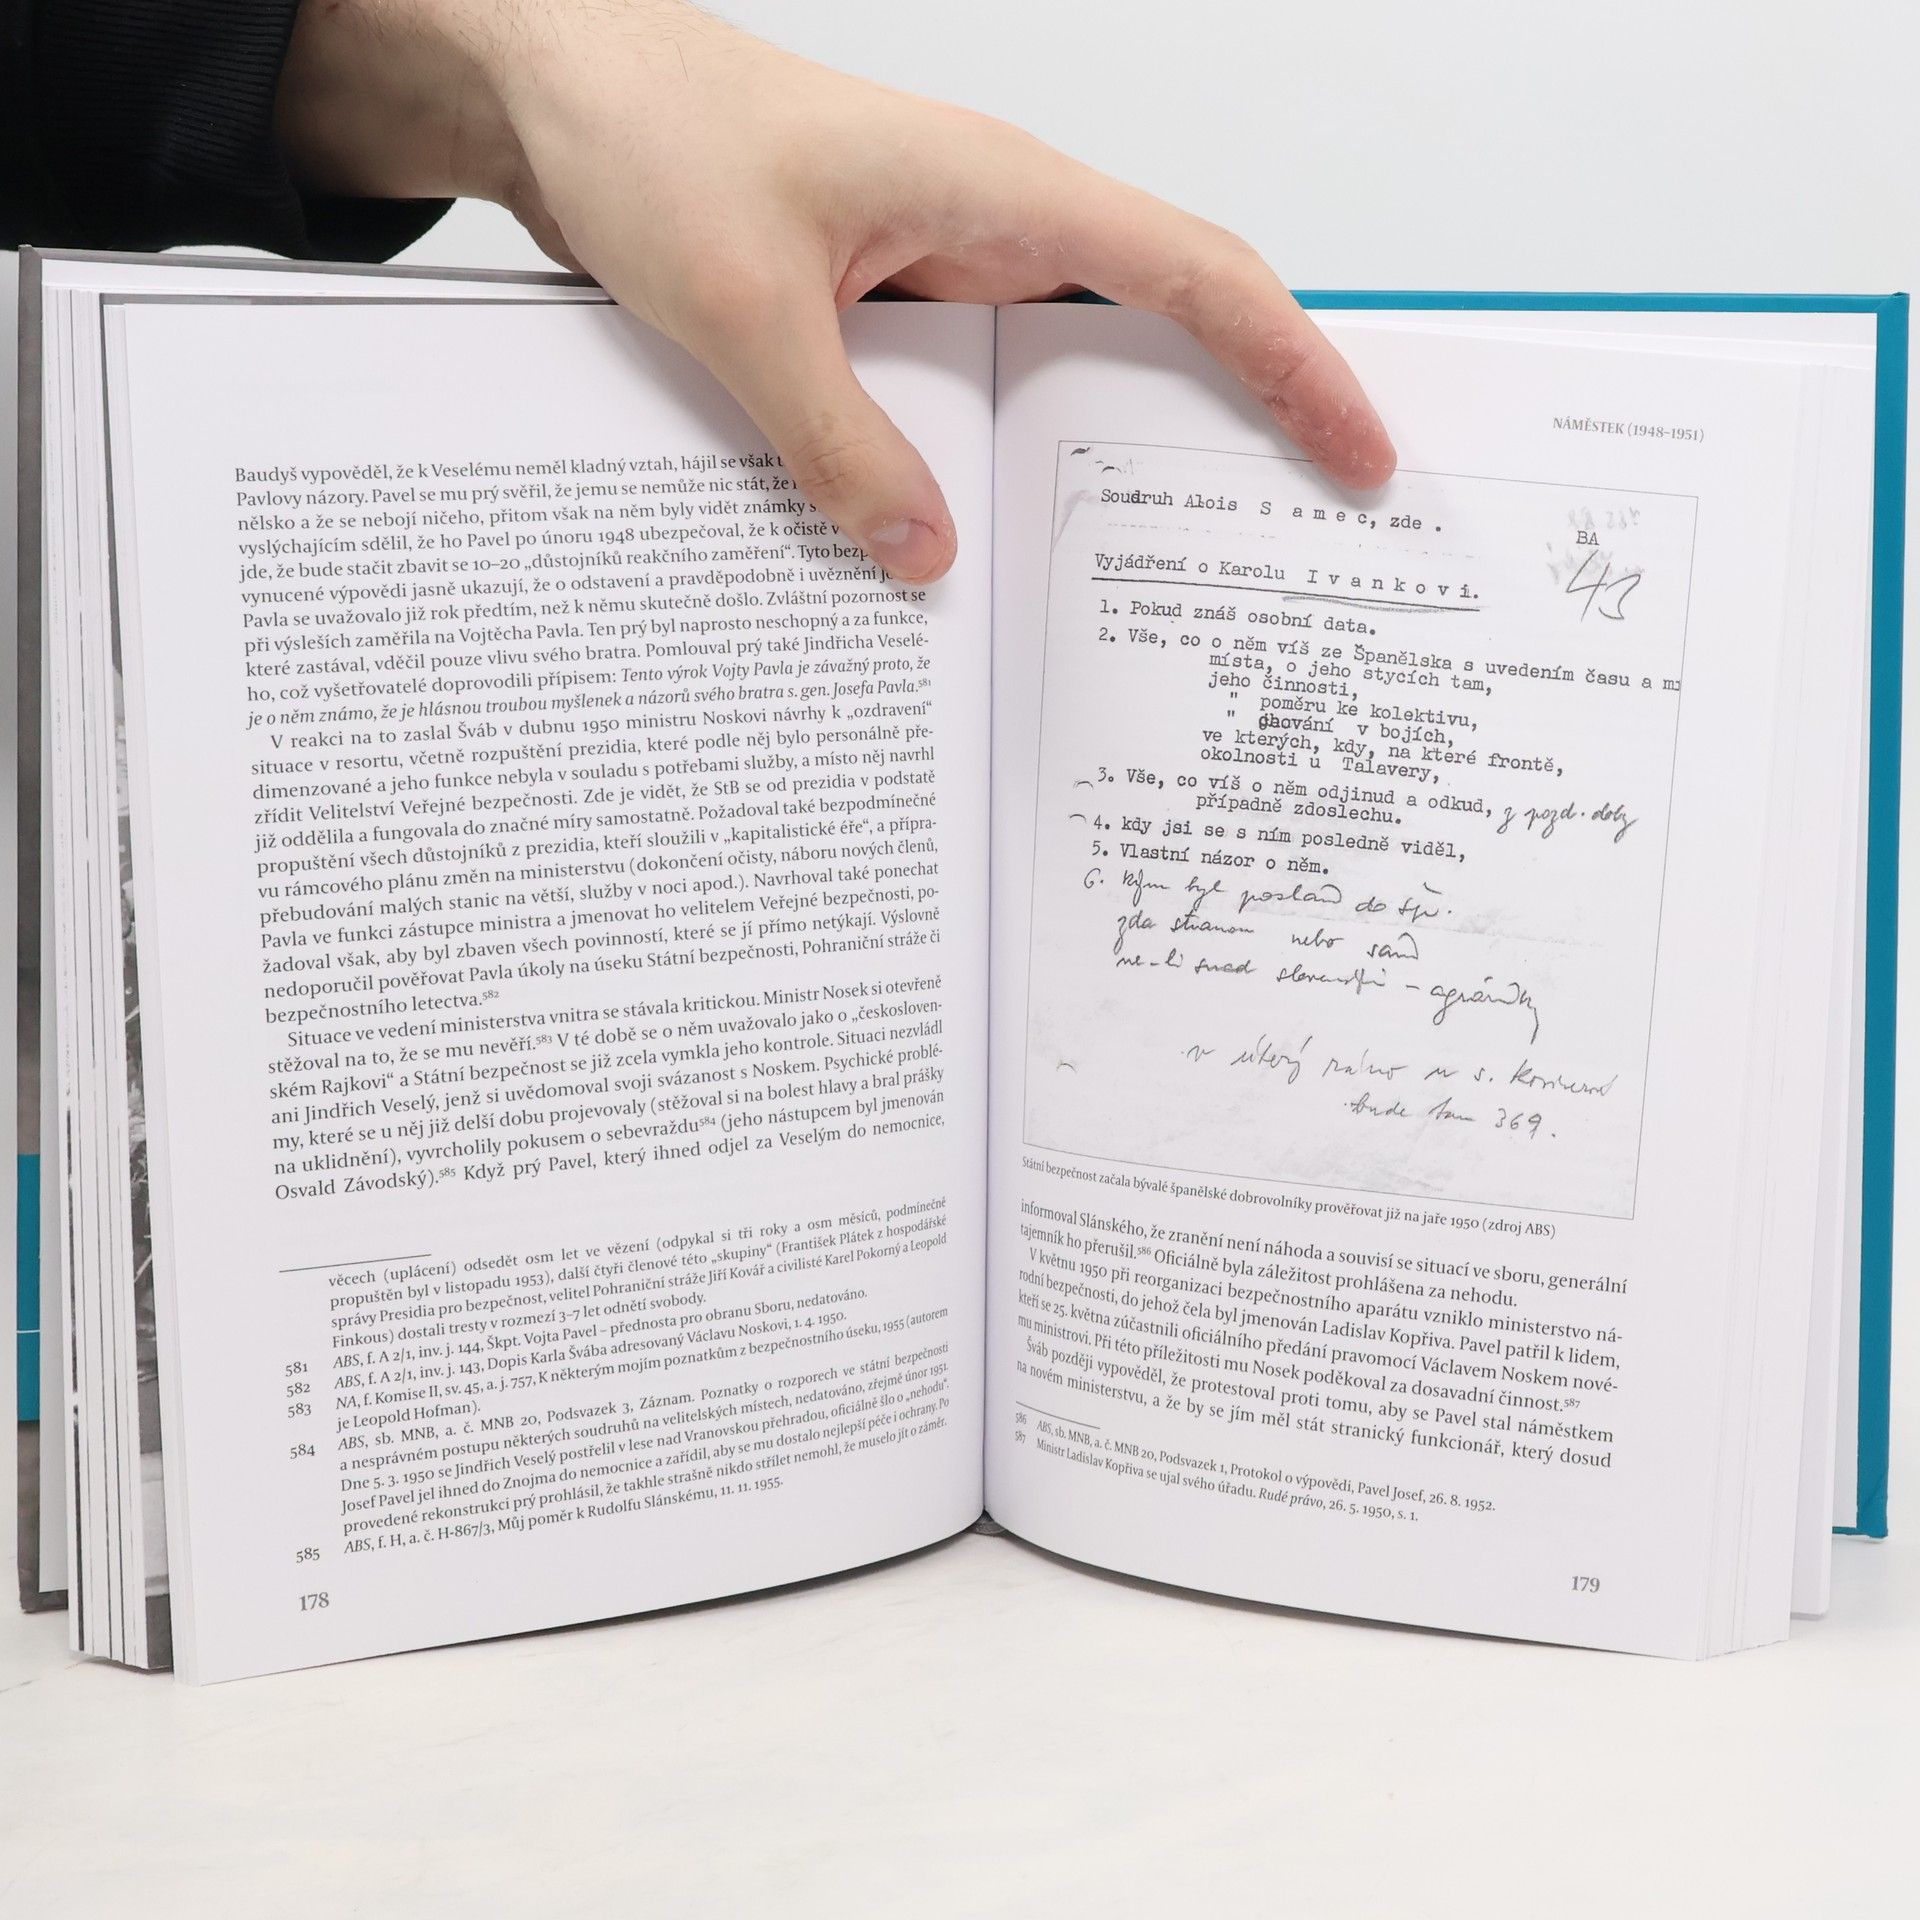 Baudyš vypověděl, že k Veselému neměl kladný vztah, hájil se však
Pavlovy názory. Pavel se mu prý svěřil, že jemu se nemůže nic stát, že
nělsko a že se nebojí ničeho, přitom však na něm byly vidět známky
vyslýchajícím sdělil, že ho Pavel po únoru 1948 ubezpečoval, že k očistě
jde, že bude stačit zbavit se 10–20 „důstojníků reakčního zaměření“. Tyto
vynucené výpovědi jasně ukazují, že o odstavení a pravděpodobně i uvěznění
Pavla se uvažovalo již rok předtím, než k němu skutečně došlo. Zvláštní pozornost se
při výsleších zaměřila na Vojtěcha Pavla. Ten prý byl naprosto neschopný a za funkce,
které zastával, vděčil pouze vlivu svého bratra. Pomlouval prý také Jindřicha Veselé-
ho, což vyšetřovatelé doprovodili přípisem: Tento výrok Vojty Pavla je závažný proto, že
je o něm známo, že je hlásnou troubou myšlenek a názorů svého bratra s. gen. Josefa Pavla.581
V reakci na to zaslal Šváb v dubnu 1950 ministru Noskovi návrhy k „ozdravení“
situace v resortu, včetně rozpuštění prezidia, které podle něj bylo personálně pře-
dimenzované a jeho funkce nebyla v souladu s potřebami služby, a místo něj navrhl
zřídit Velitelství Veřejné bezpečnosti. Zde je vidět, že StB se od prezidia v podstatě
již oddělila a fungovala do značné míry samostatně. Požadoval také bezpodmínečné
propuštění všech důstojníků z prezidia, kteří sloužili v „kapitalistické éře“, a přípra-
vu rámcového plánu změn na ministerstvu (dokončení očisty, náboru nových členů,
přebudování malých stanic na větší, služby v noci apod.). Navrhoval také ponechat
Pavla ve funkci zástupce ministra a jmenovat ho velitelem Veřejné bezpečnosti, po-
žadoval však, aby byl zbaven všech povinností, které se jí přímo netýkají. Výslovně
nedoporučil pověřovat Pavla úkoly na úseku Státní bezpečnosti, Pohraniční stráže či
bezpečnostního letectva.582
Situace ve vedení ministerstva vnitra se stávala kritickou. Ministr Nosek si otevřeně
stěžoval na to, že se mu nevěří.583 V té době se o něm uvažovalo jako o „českosloven-
ském Rajkovi“ a Státní bezpečnost se již zcela vymkla jeho kontrole. Situaci nezvládl
ani Jindřich Veselý, jenž si uvědomoval svoji svázanost s Noskem. Psychické problé-
my, které se u něj již delší dobu projevovaly (stěžoval si na bolest hlavy a bral prášky
na uklidnění), vyvrcholily pokusem o sebevraždu584 (jeho nástupcem byl jmenován
Osvald Závodský).585 Když prý Pavel, který ihned odjel za Veselým do nemocnice,
věcech (uplácení) odsedět osm let ve vězení (odpykal si tři roky a osm měsíců, podmínečně
propuštěn byl v listopadu 1953), další čtyři členové této „skupiny“ (František Plátek z hospodářské
správy Presidia pro bezpečnost, velitel Pohraniční stráže Jiří Kovář a civilisté Karel Pokorný a Leopold
Finkous) dostali tresty v rozmezí 3–7 let odnětí svobody.
581 ABS, f. A 2/1, inv. j. 144, Škpt. Vojta Pavel – přednosta pro obranu Sboru, nedatováno.
582 ABS, f. A 2/1, inv. j. 143, Dopis Karla Švába adresovaný Václavu Noskovi, 1. 4. 1950.
583 NA, f. Komise II, sv. 45, a. j. 757, K některým mojím poznatkům z bezpečnostního úseku, 1955 (autorem
je Leopold Hofman).
584 ABS, sb. MNB, a. č. MNB 20, Podsvazek 3, Záznam. Poznatky o rozporech ve státní bezpečnosti
a nesprávném postupu některých soudruhů na velitelských místech, nedatováno, zřejmě únor 1951.
Dne 5. 3. 1950 se Jindřich Veselý postřelil v lese nad Vranovskou přehradou, oficiálně šlo o „nehodu“.
Josef Pavel jel ihned do Znojma do nemocnice a zařídil, aby se mu dostalo nejlepší péče i ochrany. Po
provedené rekonstrukci prý prohlásil, že takhle strašně nikdo střílet nemohl, že muselo jít o záměr.
585 ABS, f. H, a. č. H-867/3, Můj poměr k Rudolfu Slánskému, 11. 11. 1955.
178
NÁMĚSTEK (1948–1951)
Soudruh Alois S a m e c, zde .
BA
43
Vyjádření o Karolu I v a n k o v i.
1. Pokud znáš osobní data.
2. Vše, co o něm víš ze Španělska s uvedením času a
místa, o jeho stycích tam,
jeho činnosti,
" poměru ke kolektivu,
" chování v bojích,
ve kterých, kdy, na které frontě,
okolnosti u Talavery,
3. Vše, co víš o něm odjinud a odkud, z pozd. doby
případně zdoslechu.
4. kdy jsi se s ním posledně viděl,
5. Vlastní názor o něm.
6. Kým byl poslán do Šp.
zda stranou nebo sám
ne-li snad slovenskými - agrárníky
v úterý ráno u s.
bude tam 369.
Státní bezpečnost začala bývalé španělské dobrovolníky prověřovat již na jaře 1950 (zdroj ABS)
informoval Slánského, že zranění není náhoda a souvisí se situací ve sboru, generální
tajemník ho přerušil.586 Oficiálně byla záležitost prohlášena za nehodu.
V květnu 1950 při reorganizaci bezpečnostního aparátu vzniklo ministerstvo ná-
rodní bezpečnosti, do jehož čela byl jmenován Ladislav Kopřiva. Pavel patřil k lidem,
kteří se 25. května zúčastnili oficiálního předání pravomocí Václavem Noskem nové-
mu ministrovi. Při této příležitosti mu Nosek poděkoval za dosavadní činnost.587
Šváb později vypověděl, že protestoval proti tomu, aby se Pavel stal náměstkem
na novém ministerstvu, a že by se jím měl stát stranický funkcionář, který dosud
586 ABS, sb. MNB, a. č. MNB 20, Podsvazek 1, Protokol o výpovědi, Pavel Josef, 26. 8. 1952.
587 Ministr Ladislav Kopřiva se ujal svého úřadu. Rudé právo, 26. 5. 1950, s. 1.
179